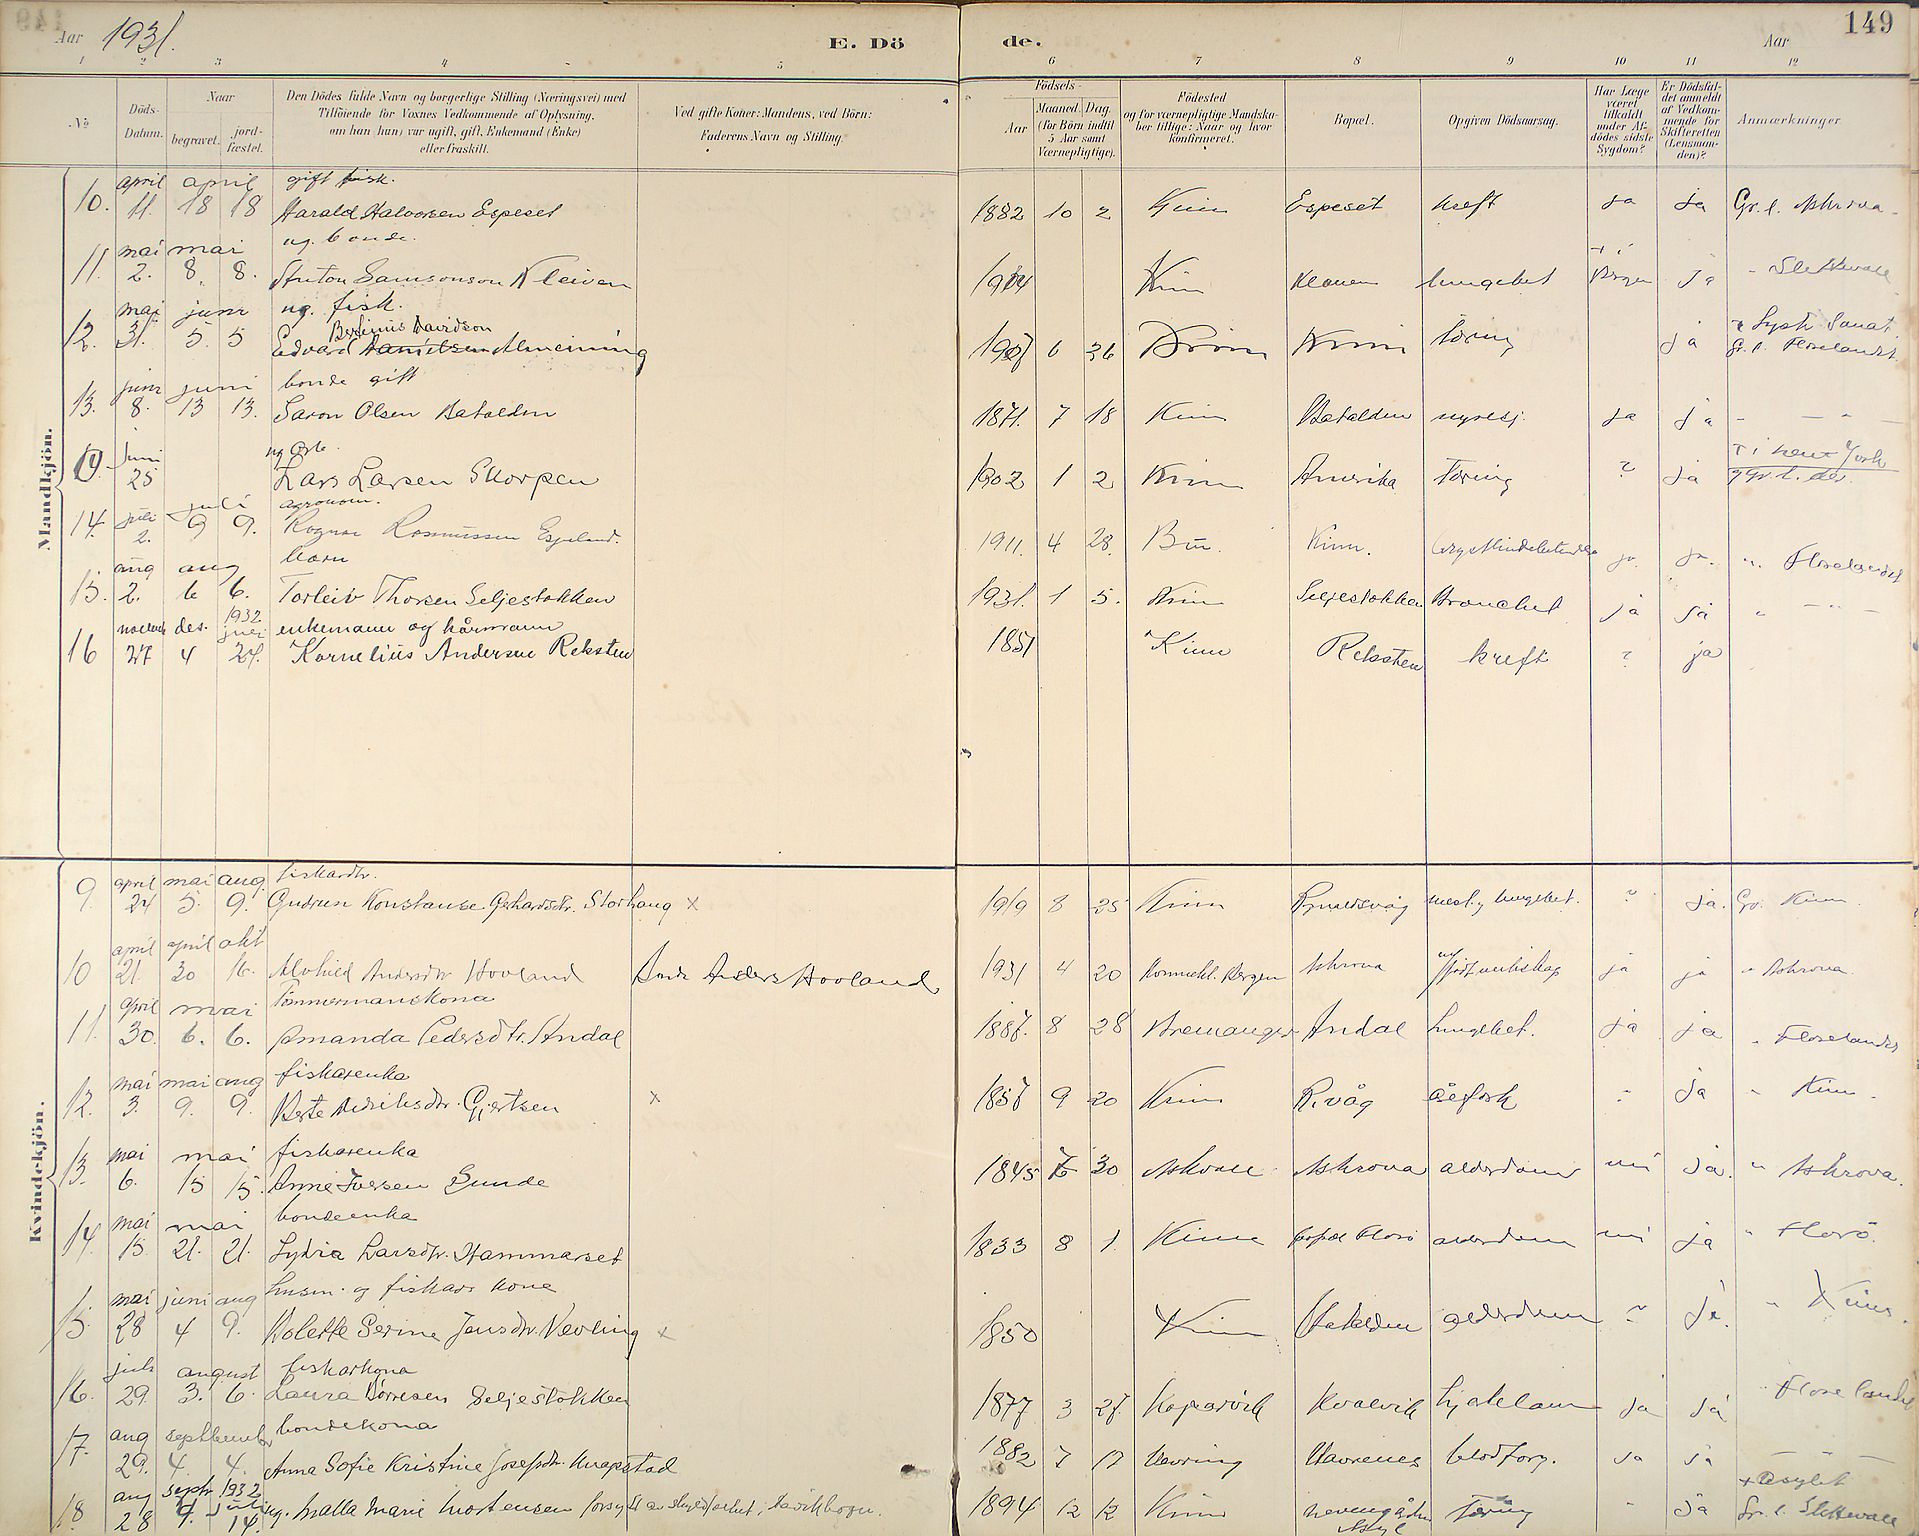 149
Aar 1931.
E. Dö
de.
Aar
1 2 3 4 5 6 7 8 9 10 11 12
№
Döds-
Datum.
Naar
begravet.
jord-
fæstet.
Den Dödes fulde Navn og borgerlige Stilling (Næringsvei) med
Tilföiende for Voxnes Vedkommende af Oplysning,
om han (hun) var ugift, gift, Enkemand (Enke)
eller fraskilt.
Ved gifte Koner: Mandens, ved Börn:
Faderens Navn og Stilling.
Födsels-
Aar
Maaned. Dag.
(for Börn indtil
5 Aar samt
Værnepligtige).
Födested
og for værnepligtige Mandska-
ber tillige: Naar og hvor
konfirmeret.
Bopæl.
Opgiven Dödsaarsag.
Har Læge
været
tilkaldt
under Af-
dödes sidste
Sygdom?
Er Dödsfal-
det anmeldt
af Vedkom-
mende for
Skifteretten
(Lensman-
den)?
Anmærkninger.
Mandkjön.
april april gift fisk.
10. 11. 18 18 Harald Halvorsen Espeset 1882 10 2 Kinn Espeset kreft ja ja Gr. l. Askrova
mai mai ug. bonde.
11. 2. 8. 8. Anton Samsonson Kleiven 1914 Kinn Kleiven lungebet Bergen ja Slettevall
mai juni ug. fisk.
Berlinus Davidson
12. 31. 5. 5 Edvard Danielsen Almenning 1907 6 26 Kinn Kinn tæring ja Gr. l. Florelandet
juni juni bonde gift
13. 8. 13 13. Saron Olsen Batalden 1871. 7 18 Kinn Batalden nyresj. ja ja
juni
25 Lars Larsen Skorpen 1902 1 2 Kinn Amerika Tæring ? ja + i New York
juli juli agronom.
14. 2. 9 9. Ragnar Rasmussen Espeland. 1911. 4 28. Bru. Kinn. ja. ja. Florelandet
aug aug barn
15. 2. 6 6. Torleiv Thorsen Seljestokken 1931. 1 5. Kinn Seljestokken Bronchit ja ja
des. 1932 juni enkemann og kårmann
16 27 4 24. Kornelius Andersen Reksten 1851 Kinn Reksten kreft ? ja
Kvindekjön.
april mai aug. fiskardtr.
9. 24 5. 9. Gudrun Konstanse Gerhardsdtr. Storhaug × 1919 8 25 Kinn ? ja. Gr. Kinn
april april okt
10 21. 30 16. Alvhild Andersdtr Hovland Anders Hovland 1931 4 20 Bergen Askrova ja ja " Askrova.
april mai Tømmermanskona
11. 30. 6. 6. Amanda Pedersdtr. Årdal 1887. 8 28 Bremanger Årdal Lungebet. ja ja " Florelandet
mai mai aug fiskarenka
12. 3. 9. 9. Berte Didriksdtr. Gjertsen × 1857 9 20 Kinn R.våg ja " Kinn
mai mai fiskarenka
13. 6. 15 15. Anne Iversen Sunde 1845 30 Askvoll Askrova alderdom nei ja. " Askrova.
mai mai bondeenka
14. 15 21. 21. Lydia Larsdtr. Hammarset 1833 8 1. Kinn Florö alderdom nei ja " Florö.
mai juni aug husm. og fiskar kone
15. 28 4 9. Bolette Serine Jensdtr. Nevling × 1850 Kinn Batalden alderdom ? ja. " Kinn.
juli august fiskarkona
16. 29. 3. 6. Laura Børresen Seljestokken 1877 3 27. Kvalvik hjarteslam ja ja Florelandet
aug september bondekona
17. 29. 4. 4. Anna Sofie Kristine Josefsdtr. Knapstad 1882 7 17 Hevring Havrenes blodforg. ja ja
aug septr 1932 juli
18. 28 9. 14. ug. Malla Marie Mortensen 1894 12 12 Kinn Tæring ja + asylet
Gr. l. Slettevall